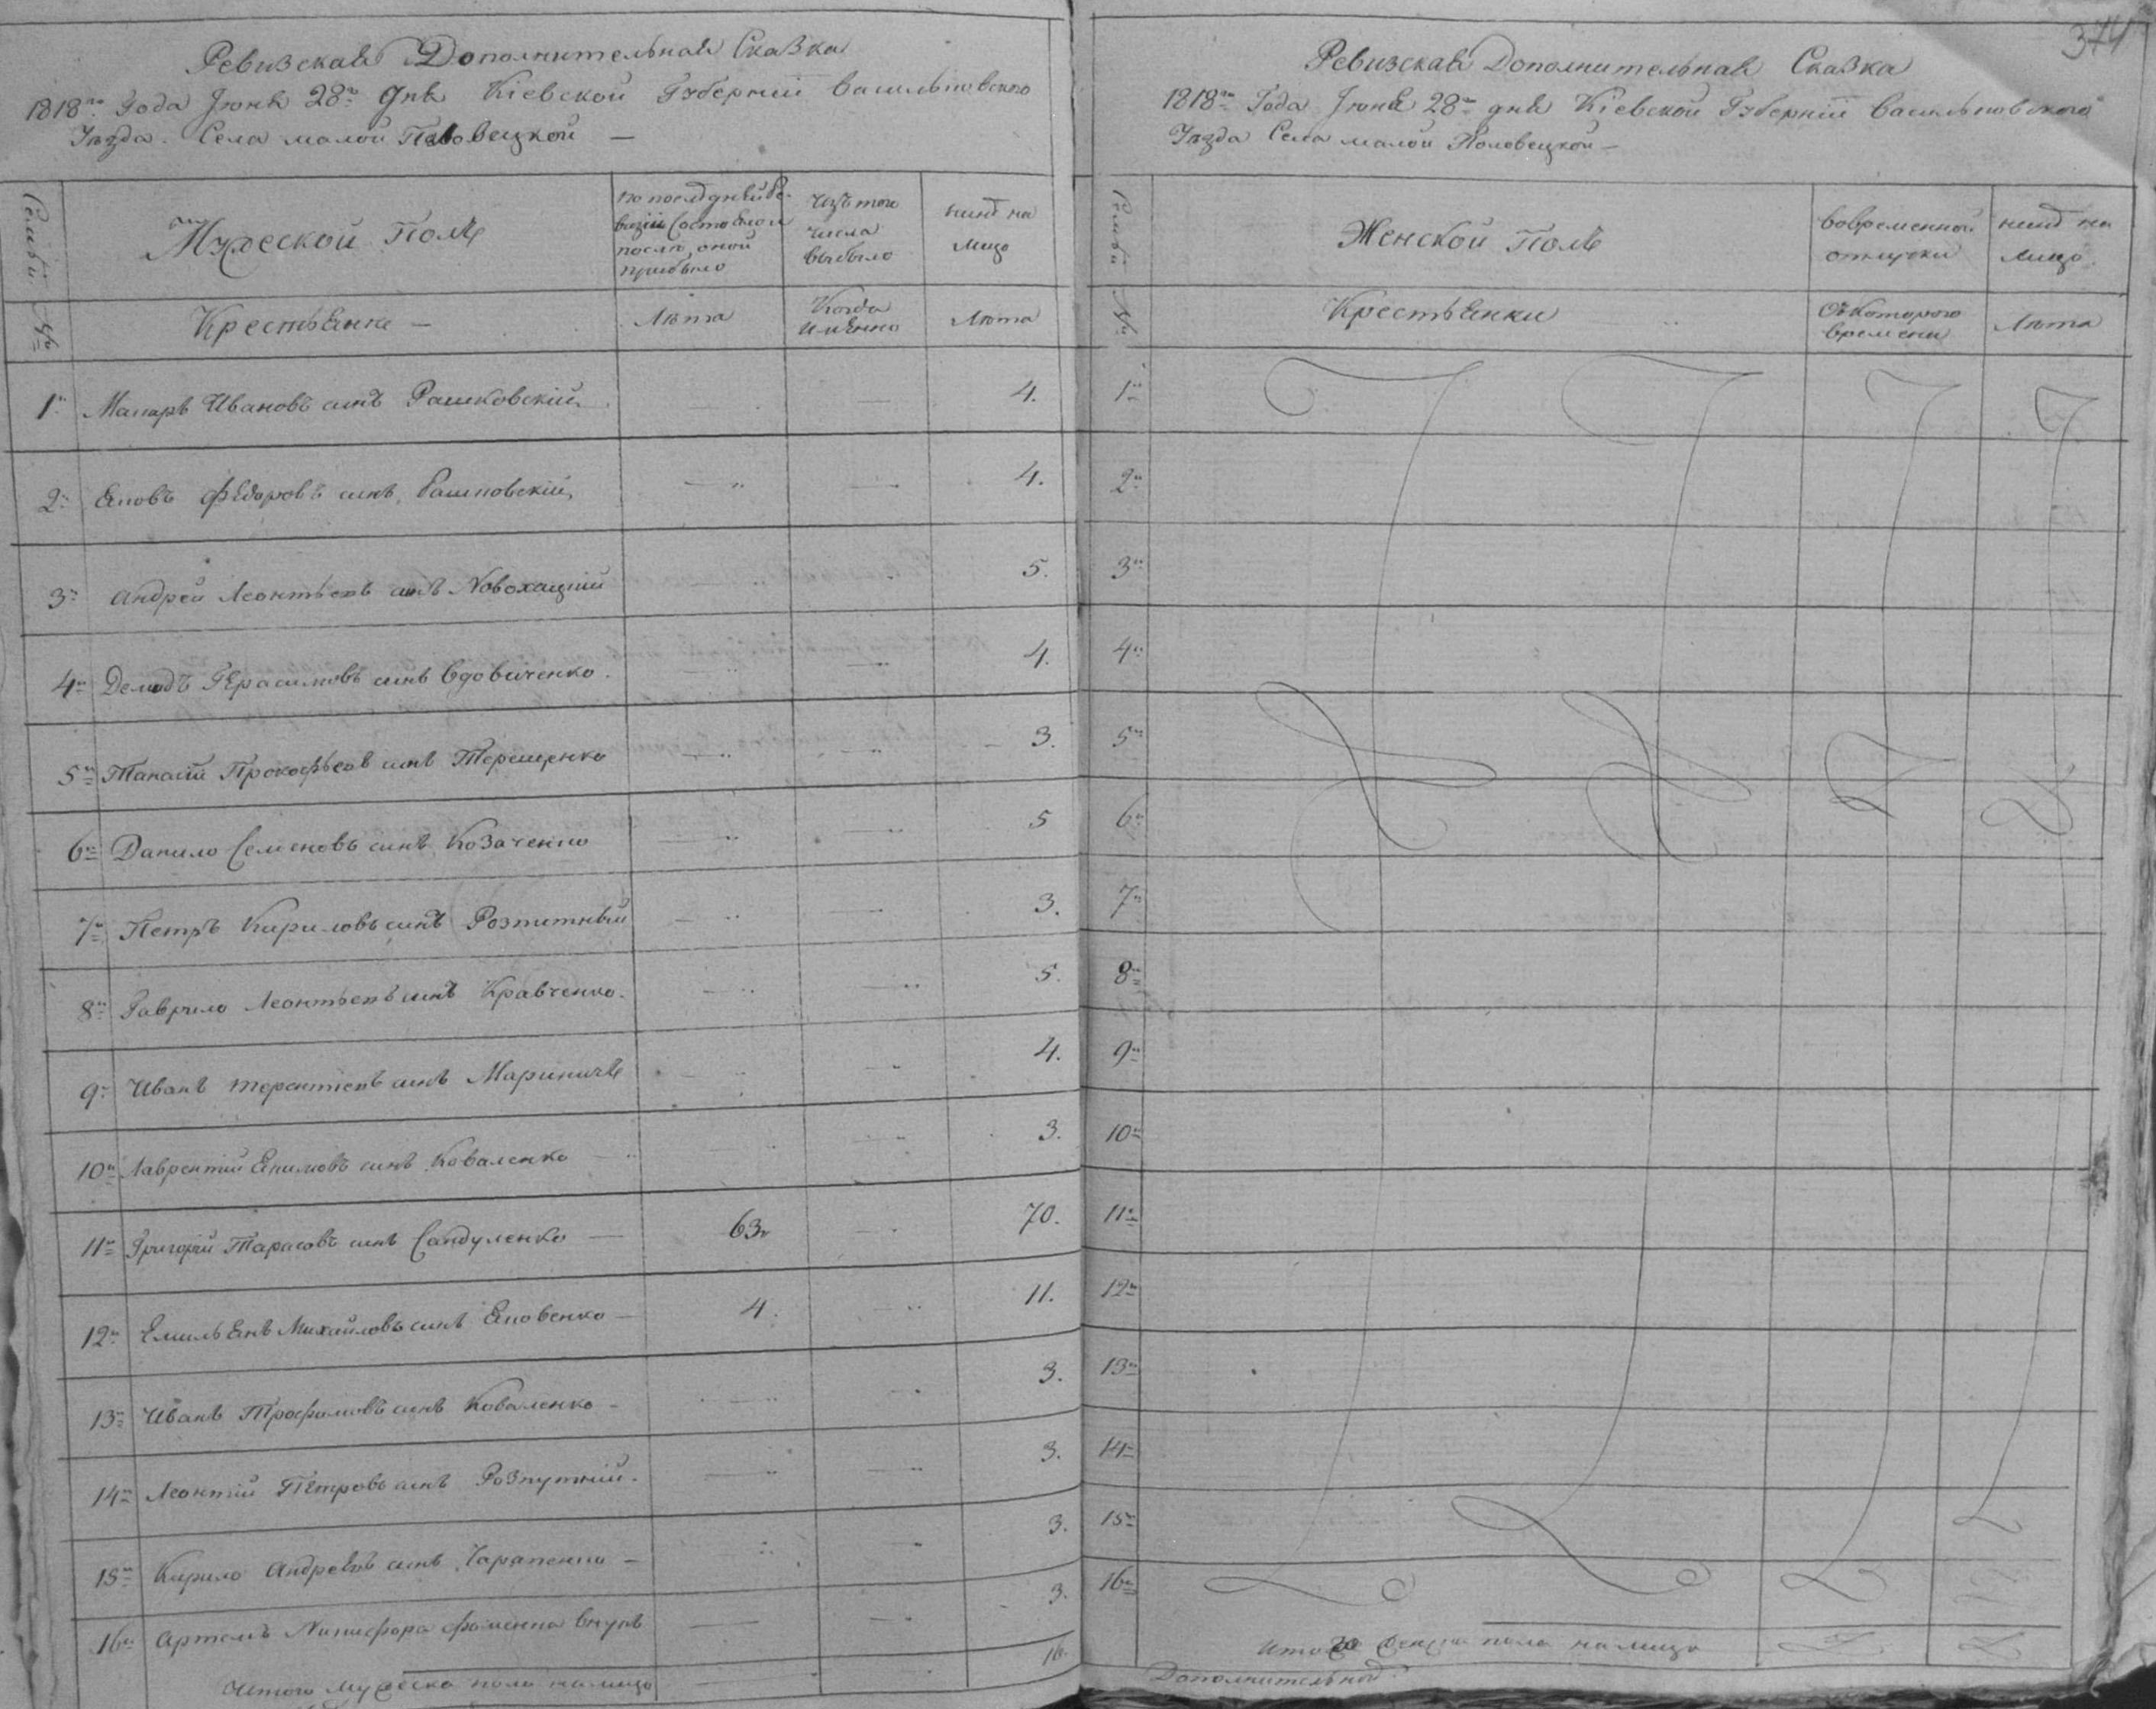 Ревизская Дополнительная Сказка
1818го Года Іюня 28го дня Кіевской Губерніи Васильковского
Уѣзда. Села малой Половецкой —
Семьи №
Мужеской Полъ
по последней ревизіи состояло и после оной прибыло
Изъ того числа выбыло
нинѣ на лицо
Крестьяне —
Лѣта
Когда имянно
Лѣта
1й Макаръ Ивановъ синъ Рашковскій 4.
2й Яковъ Федоровъ синъ Рашковскій 4.
3й Андрей Леонтьевъ синъ Новохацкий 5.
4й Демидъ Герасимовъ синъ Вдовиченко 4.
5й Танасій Прокофьевъ синъ Терещенко 3.
6й Данило Семеновъ синъ Козаченко 5
7й Петръ Кириловъ синъ 3.
8й Гаврило Леонтьевъ синъ Кравченко. 5.
9й Иванъ Терентіевъ синъ 4.
10й Лаврентий Екимовъ синъ Коваленко 3.
11й Григорій Тарасовъ синъ Сандуленко — 63 70.
12й Емильянъ Михайловъ синъ Яковенко — 4. 11.
13й Иванъ Трофимовъ синъ Коваленко — 3.
14й Леонтій Петровъ синъ Розпутній. 3.
15й Кирило Андреевъ синъ — 3.
16й Артемъ Никифора Фоменка внукъ 3.
Итого мужеска пола налицо 16.
374
Ревизская Дополнительная Сказка
1818го Года Іюня 28го дня Кіевской Губерніи Васильковского
Уѣзда Села малой Половецкой —
Семьи №
Женской Полъ
во временной отлучки
нинѣ на лицо.
Крестьянки
Съ которого времени
Лѣта
1й
2й
3й
4й
5й
6й
7й
8й
9й
10й
11й
12й
13й
14й
15й
16й
Итого женска пола налицо
Дополнительной